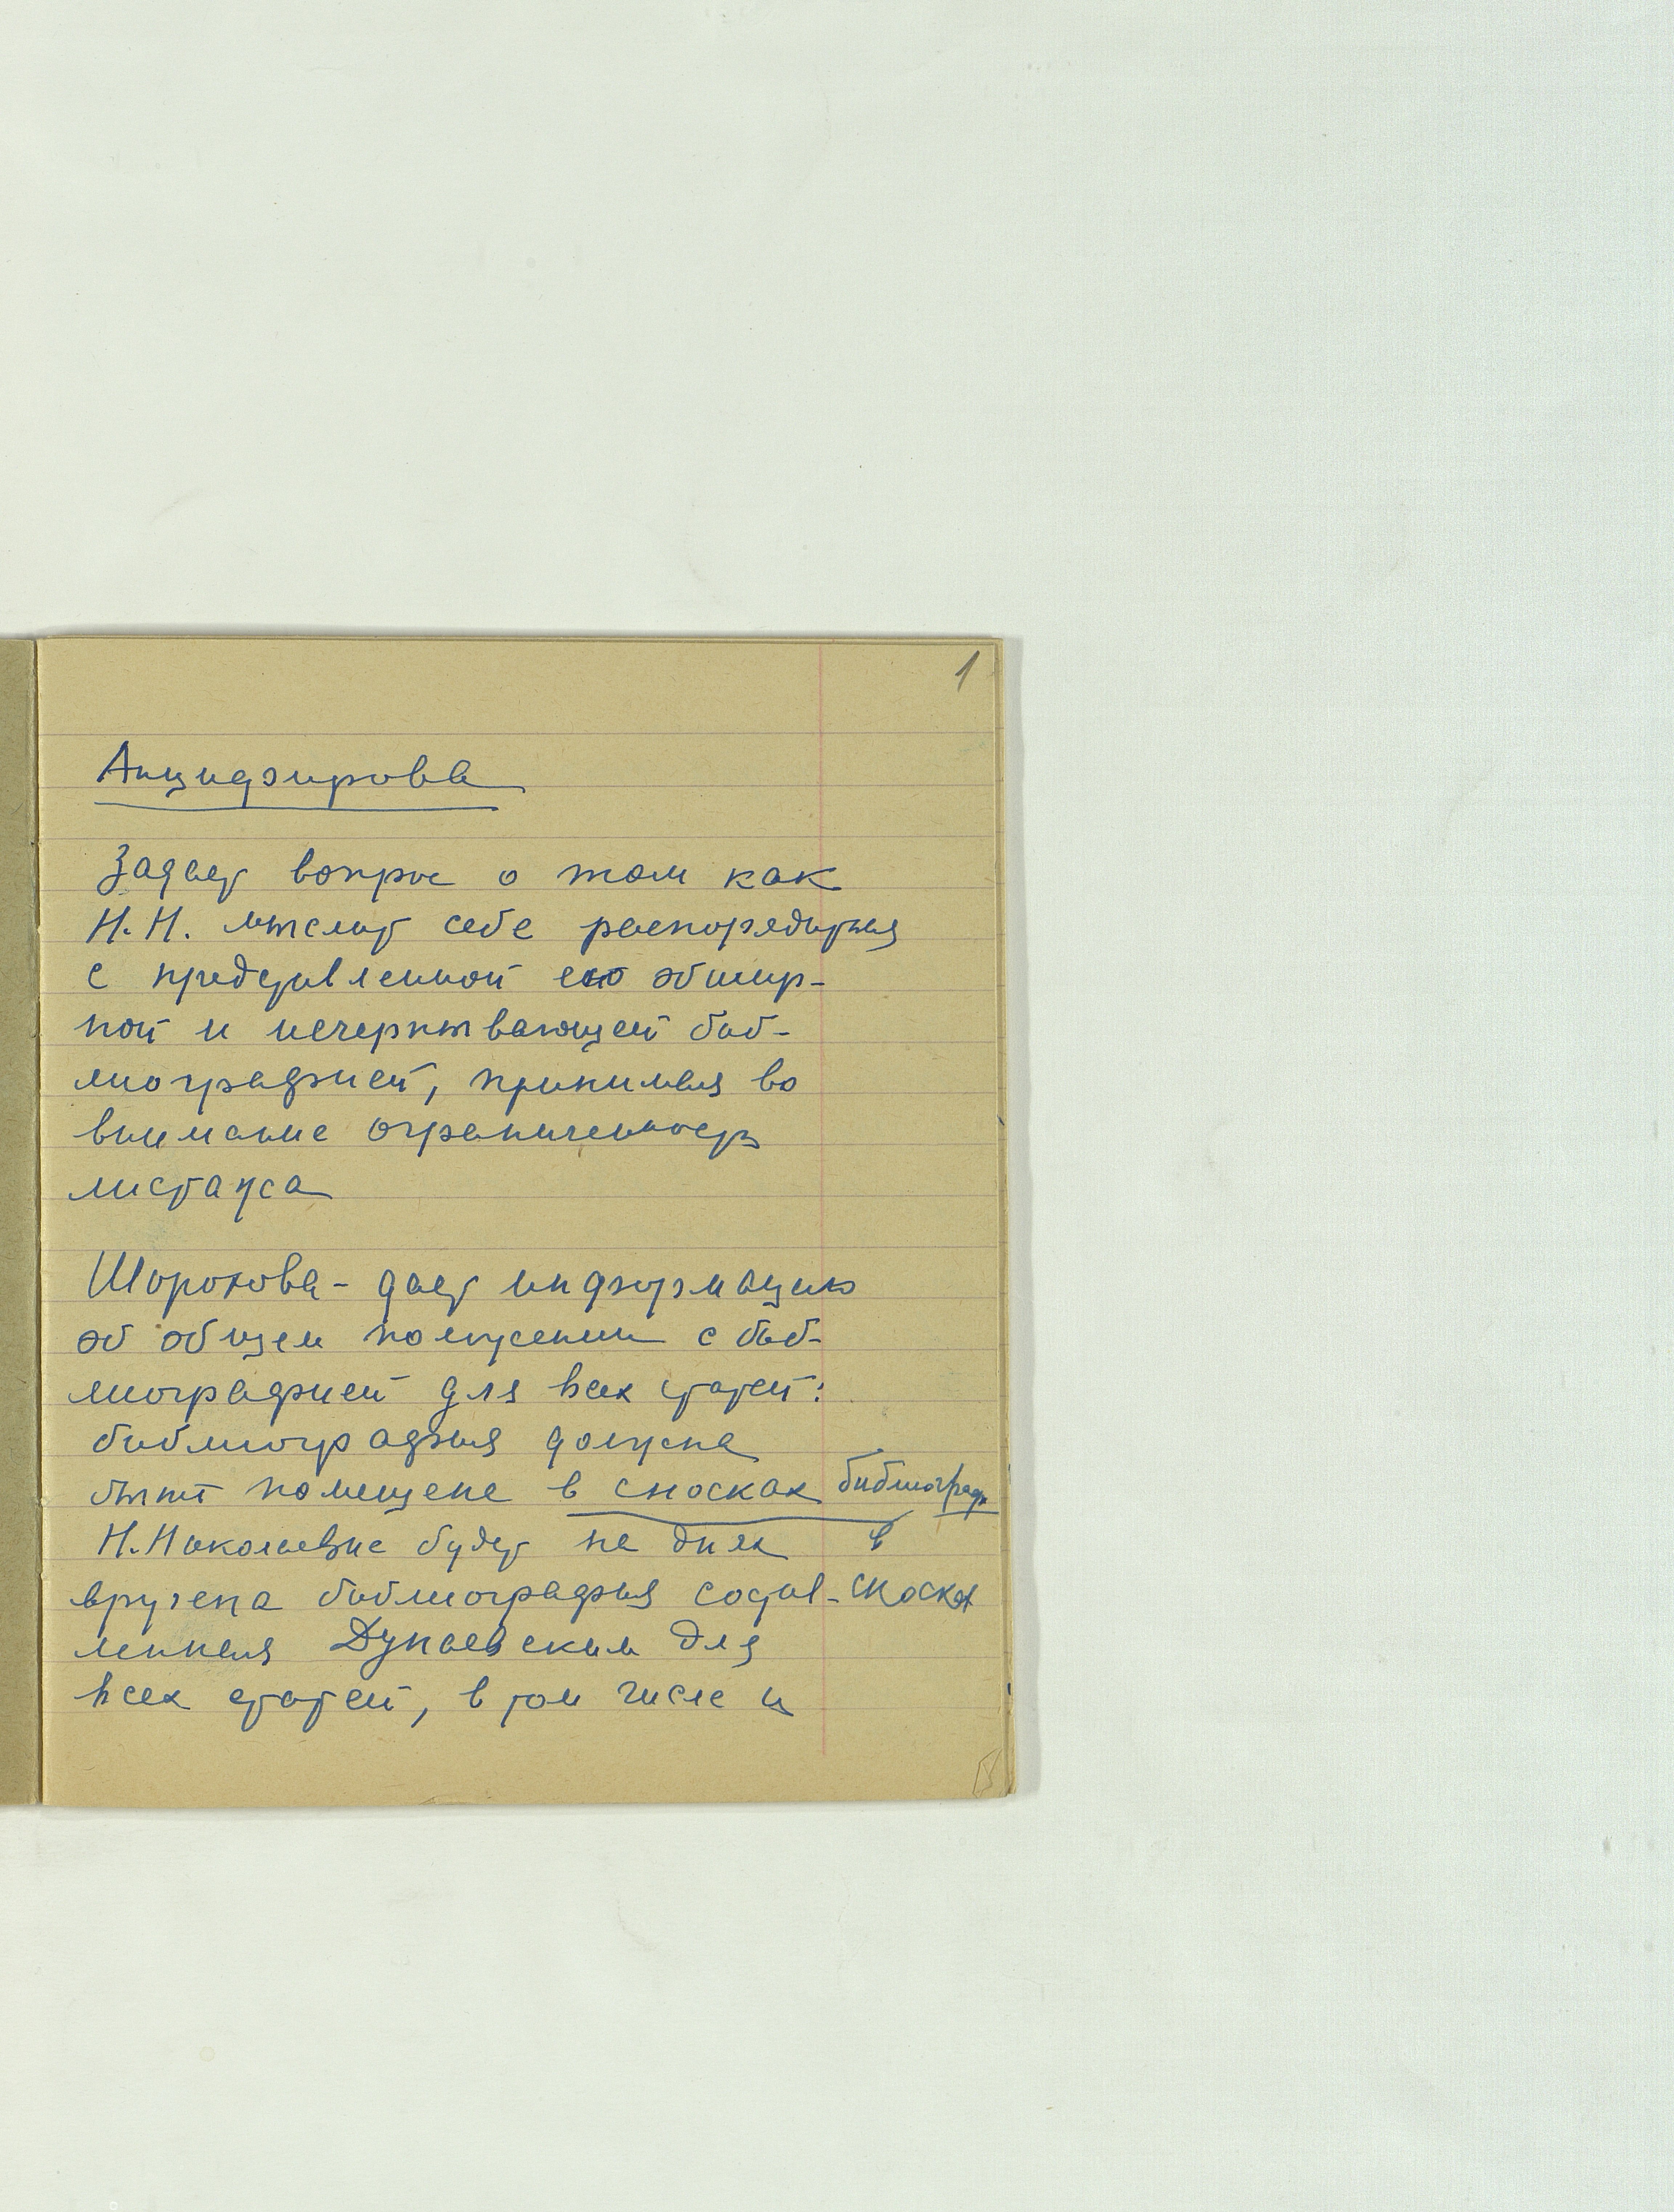 1
Анциферова
Задает вопрос о том как
Н.Н. мыслит себе распорядиться
с представленной ею обшир-
ной и исчерпывающей биб-
лиографией, принимая во
внимание ограниченность
листажа
Шорохова - дает информацию
об общем положении с биб-
лиографией для всех статей:
библиография должна
быть помещена в сносках библиограф
Н.Николаевне будет на днях в
вручена библиография состав- сноска
ленная Дунаевским для
всех статей, в том числе и